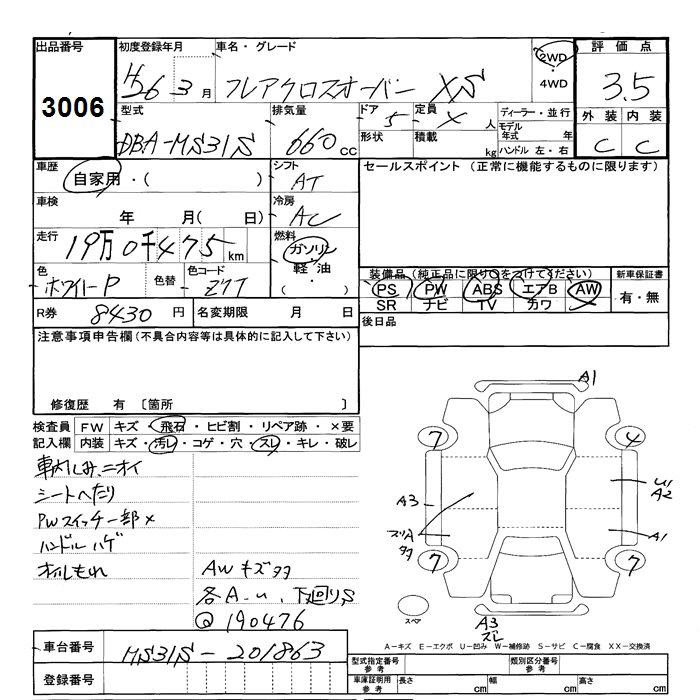 出品番号 初度登録年月 車名・グレード 2WD 4WD 評価点
3006 H26 3月 フレアクロスオーバー XS 3.5
型式 排気量 ドア 定員 ディーラー・並行 外装 内装
DBA-MS31S 660cc 5 人 モデル年式 年 C C
形状 積載 kg ハンドル 左・右
車歴 シフト セールスポイント (正常に機能するものに限ります)
自家用・( ) AT
車検 冷房
年 月( 日) AC
走行 燃料
19万0千475km ガソリン
軽油
・( )
色 色替 色コード 装備品(純正品に限り○をつけてください) 新車保証書
ホワイトP Z7T PS PW ABS エアB AW 有・無
SR ナビ TV カワ
R券 8430円 名変期限 月 日 後日品
注意事項申告欄(不具合内容等は具体的に記入して下さい)
修復歴 有 〔箇所 〕
検査員 FW キズ・飛石・ヒビ割・リペア跡・×要
記入欄 内装 キズ・汚レ・コゲ・穴・スレ・キレ・破レ
車内しみ、ニオイ
シートへたり
PWスイッチ一部×
ハンドルハゲ
オイルもれ AWキズタタ
各A-u、下廻りS
Q 190476
A1
7 4
A3 A2
A1
7 7
スペア A3
スレ
A-キズ E-エクボ U-凹み W-補修跡 S-サビ C-腐食 XX-交換済
車台番号 MS31S-201863
登録番号
型式指定番号 参考 類別区分番号 参考
車庫証明用 参考 長さ cm 幅 cm 高さ cm